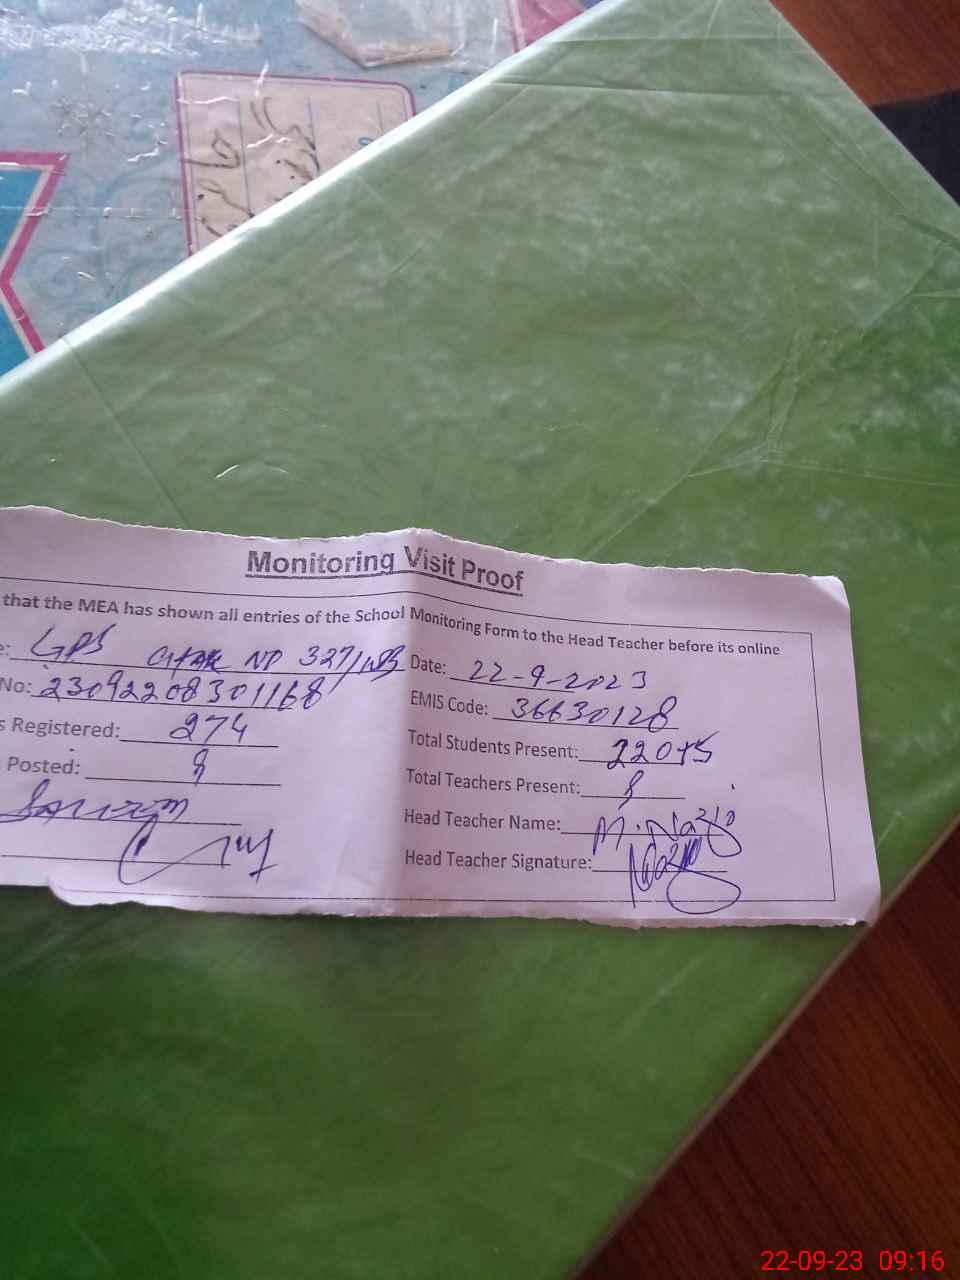 Monitoring Visit Proof
that the MEA has shown all entries of the School Monitoring Form to the Head Teacher before its online
e: GPS Chak No 327/WB Date: 22-9-2023
No: 23092208301168 EMIS Code: 36630128
s Registered: 274 Total Students Present: 220+5
Posted: 8 Total Teachers Present: 8
Head Teacher Name: M. Nazir
Head Teacher Signature: Nazir
22-09-23 09:16